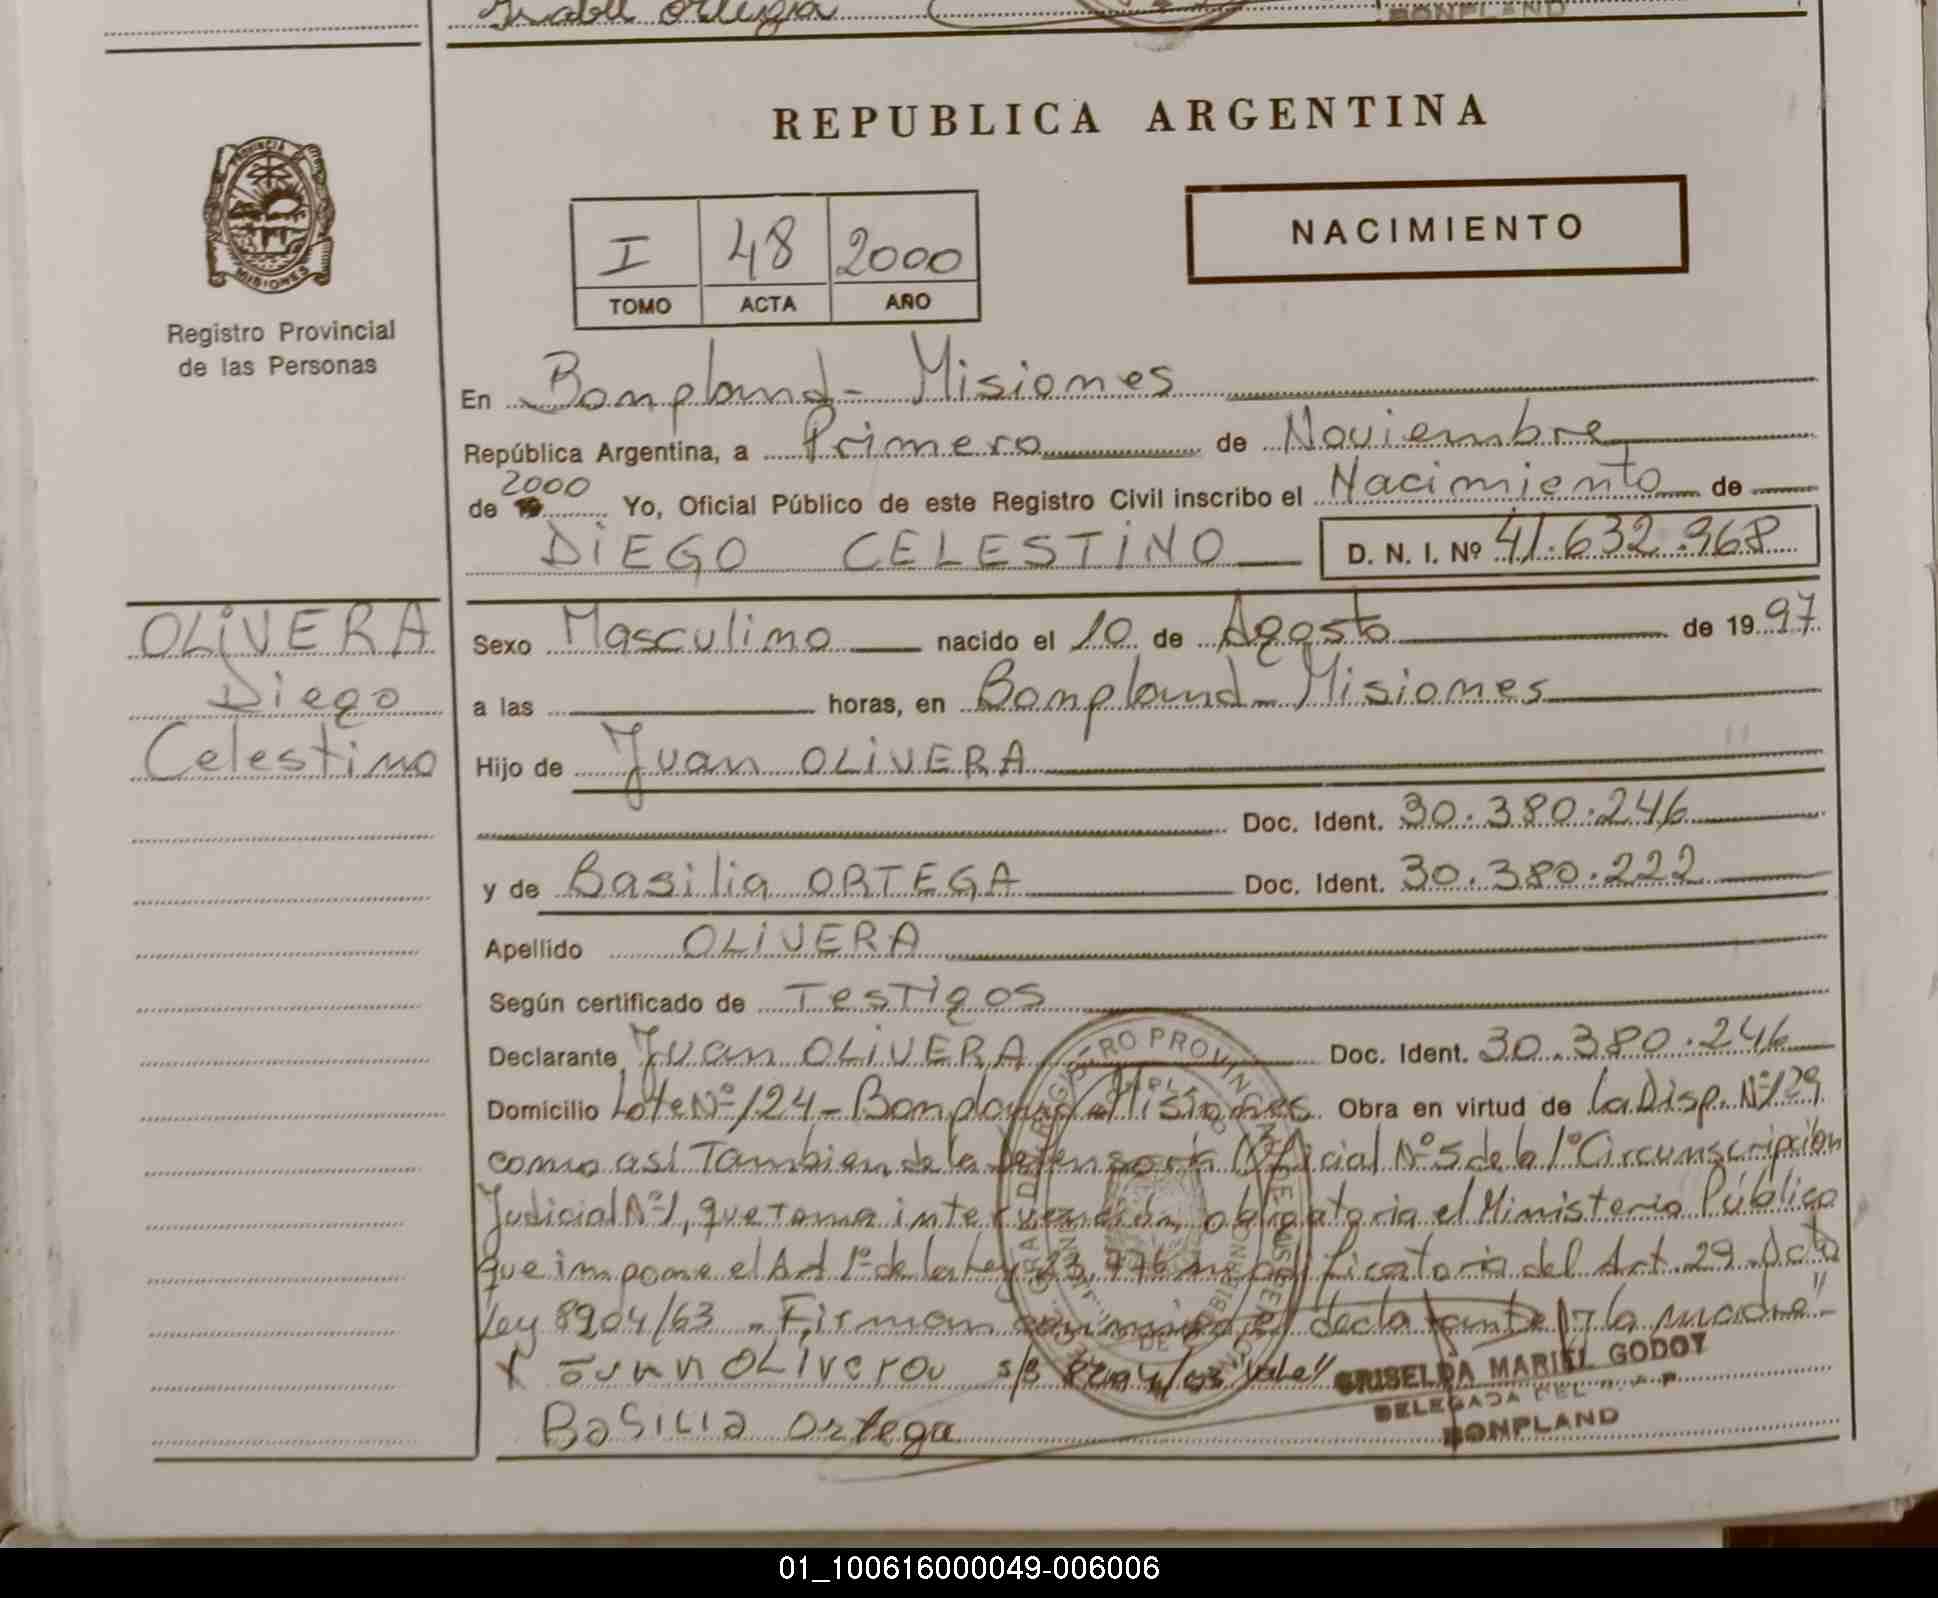 Isabel Ortega
BONPLAND
REPUBLICA ARGENTINA
PROVINCIA DE
MISIONES
Registro Provincial
de las Personas
I 48 2000
TOMO ACTA AÑO
NACIMIENTO
En Bonpland - Misiones
República Argentina, a Primero de Noviembre
de 2000 Yo, Oficial Público de este Registro Civil inscribo el Nacimiento de
DIEGO CELESTINO D. N. I. Nº 41.632.968
OLIVERA
Diego
Celestino
Sexo Masculino nacido el 10 de Agosto de 1997
a las horas, en Bonpland - Misiones
Hijo de Juan OLIVERA
Doc. Ident. 30.380.246
y de Basilia ORTEGA Doc. Ident. 30.380.222
Apellido OLIVERA
Según certificado de Testigos
Declarante Juan OLIVERA Doc. Ident. 30.380.246
Domicilio Lote Nº 124 - Bonpland - Misiones Obra en virtud de la Disp. Nº 129
como así Tambien de la Defensoría Oficial Nº 5 de la 1º Circunscripción
Judicial Nº 1, que toma intervención obligatoria el Ministerio Público
que impone el Art 1º de la Ley 23.776 modificatoria del Art. 29 Dcto
Ley 8204/63 - Firman conmigo el declarante y la madre"
X Juan OLiverOu s/b 8204/63 "Vale"
GRISELDA MARIEL GODOY
DELEGADA DEL R.P.P
BONPLAND
BaSiLia Ortega
01_100616000049-006006